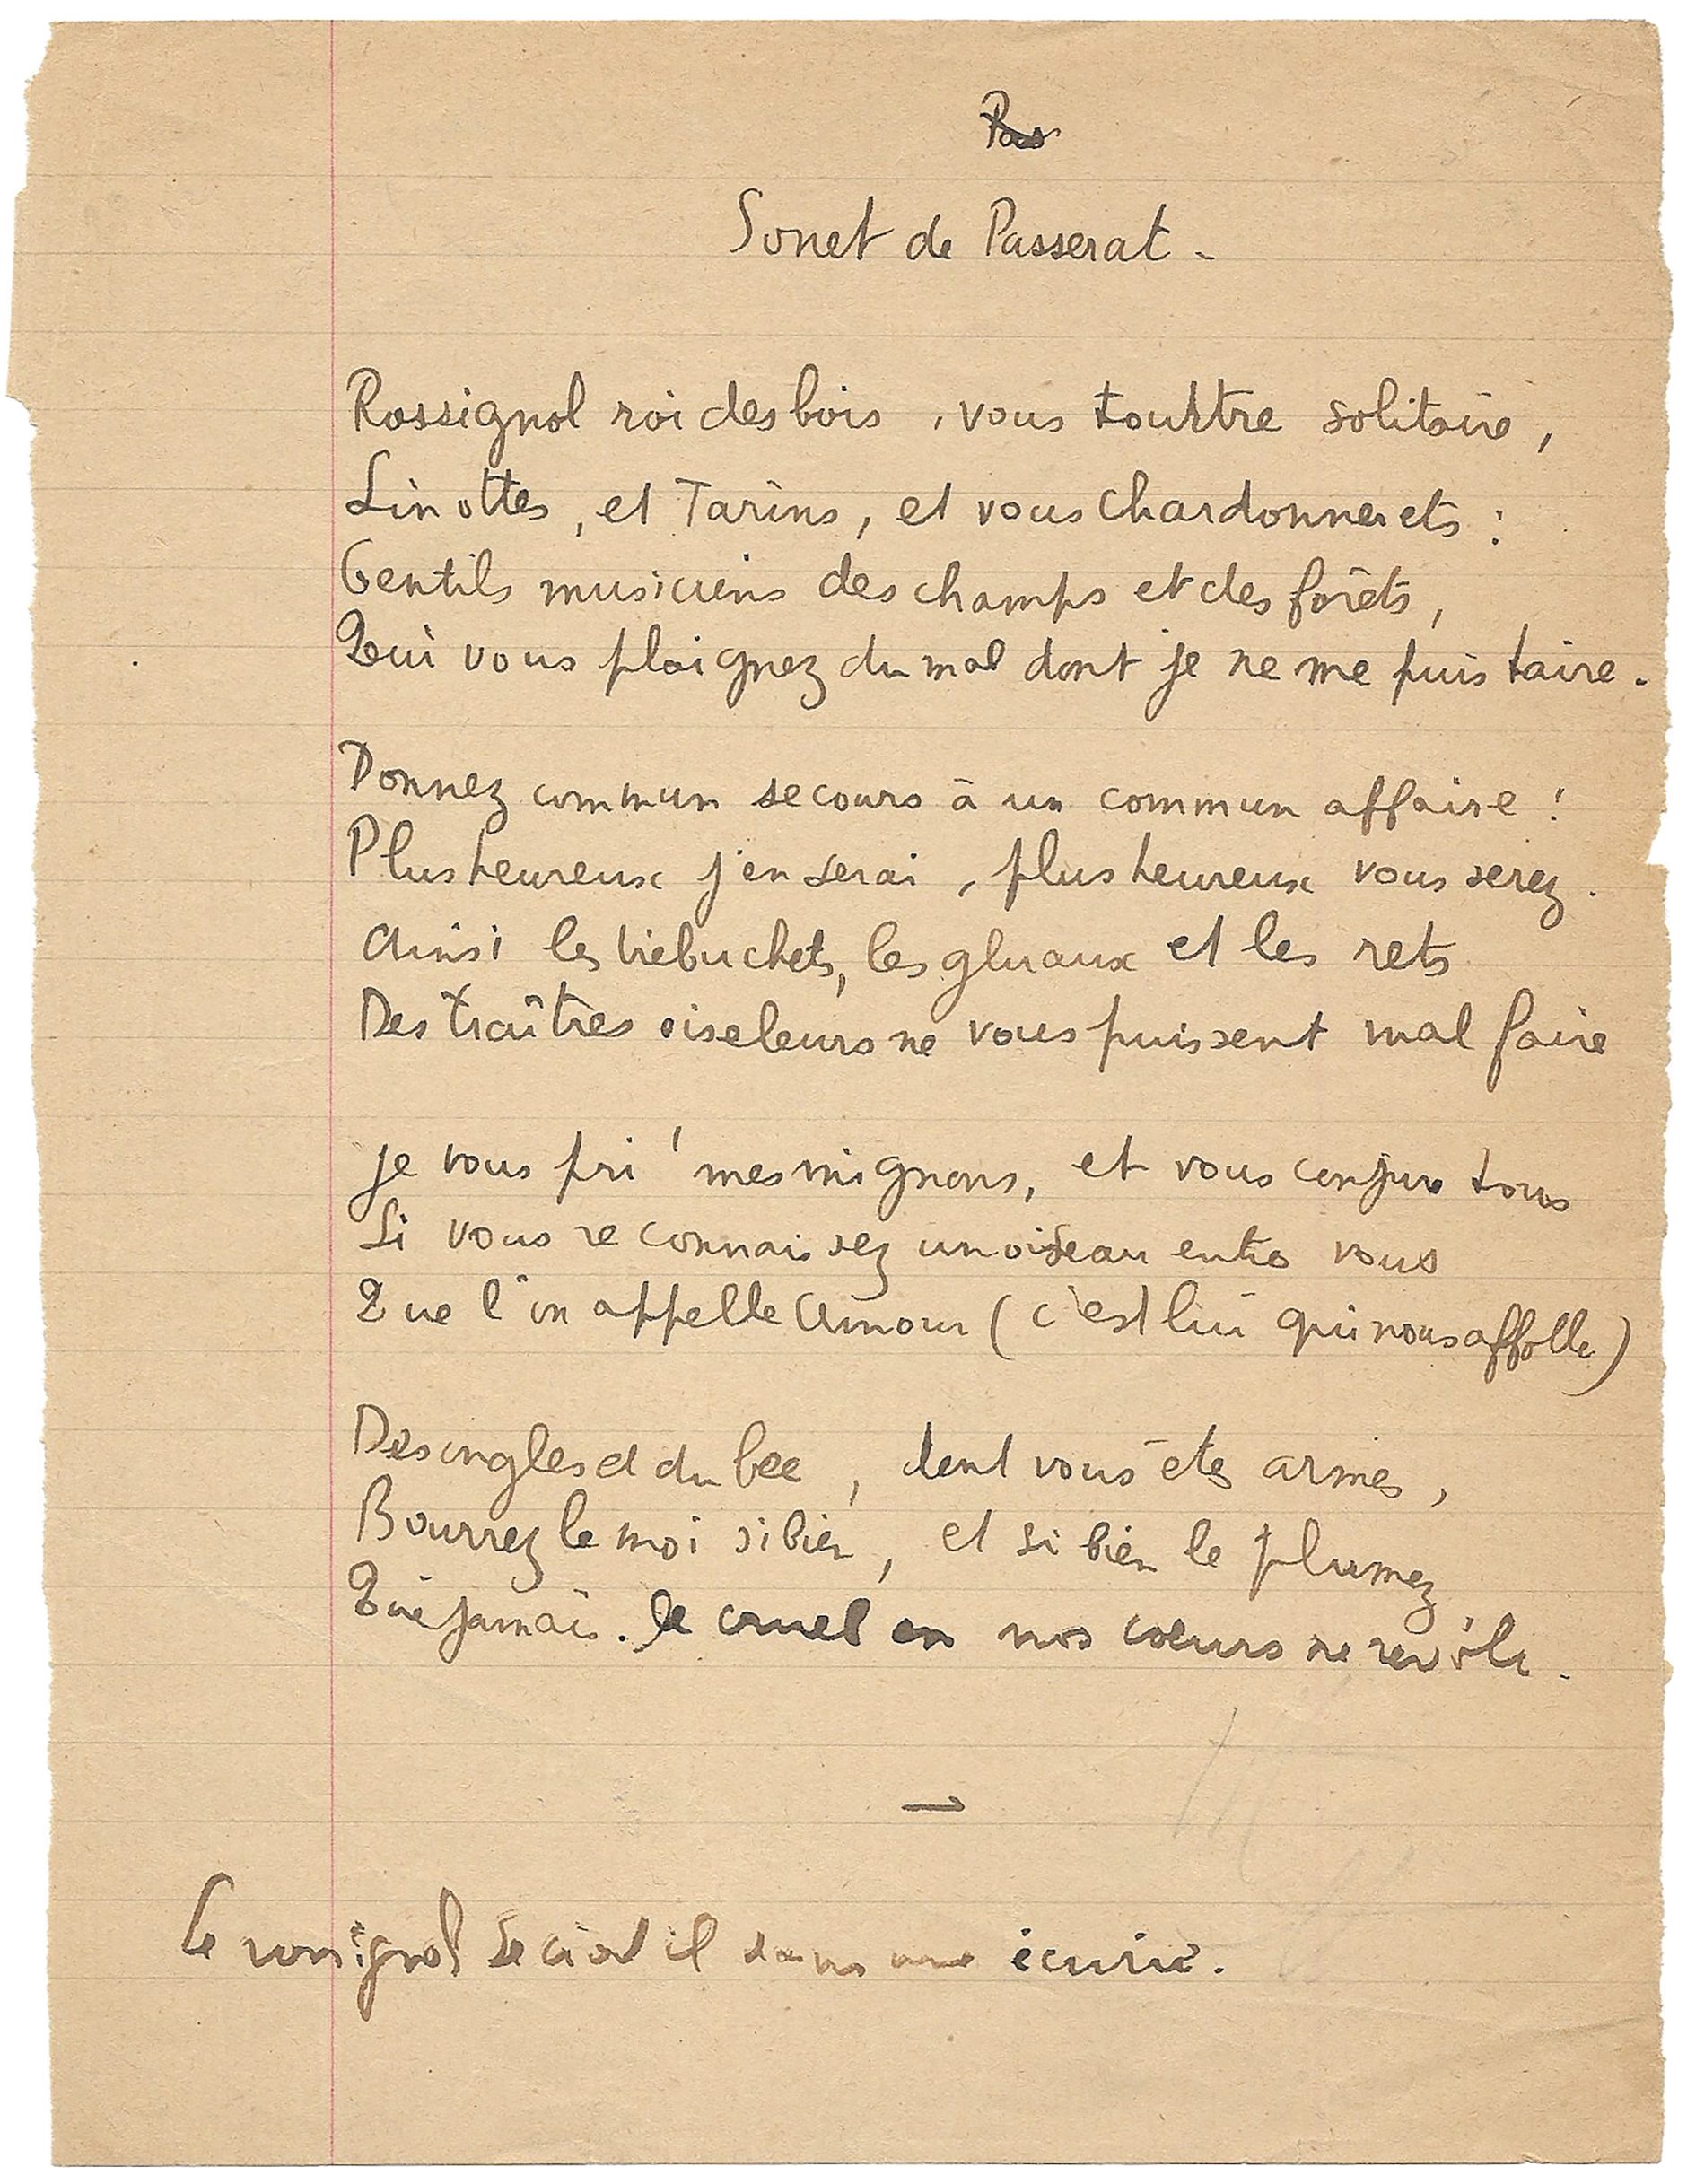 Pas
Sonet de Passerat -
Rossignol roi des bois, vous tourtre solitaire,
Linottes, et Tarins, et vous Chardonnerets :
Gentils musiciens des champs et des forêts,
Qui vous plaignez du mal dont je ne me puis taire.
Donnez commun secours à un commun affaire !
Plus heureux j'en serai, plus heureux vous serez.
Ainsi les trebuchets, les gluaux et les rets
Des traîtres oiseleurs ne vous puissent mal faire
je vous pri' mes mignons, et vous conjure tous
Si vous reconnaissez un oiseau entre vous
Que l'on appelle Amour (c'est lui qui nous affolle)
Des ongles et du bec, dont vous êtes armés,
Bourrez le moi si bien, et si bien le plumez
Que jamais. le cruel en nos cœurs ne revole.
Le rossignol dans une écurie.